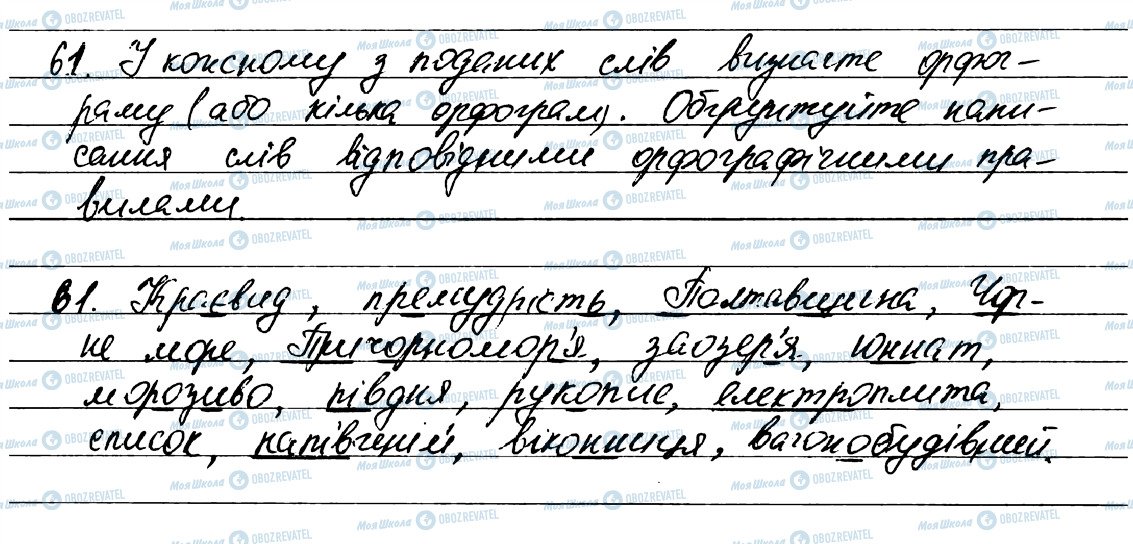 61. У кожному з поданих слів визначте орфог-
раму (або кілька орфограм). Обґрунтуйте напи-
сання слів відповідними орфографічними пра-
вилами.
61. Краєвид, премудрість, Полтавщина, Чор-
не море, Причорномор'я, заозер'я, юннат,
морозиво, півдня, рукопис, електроплита,
список, напівгеній, віконниця, вагонобудівний.